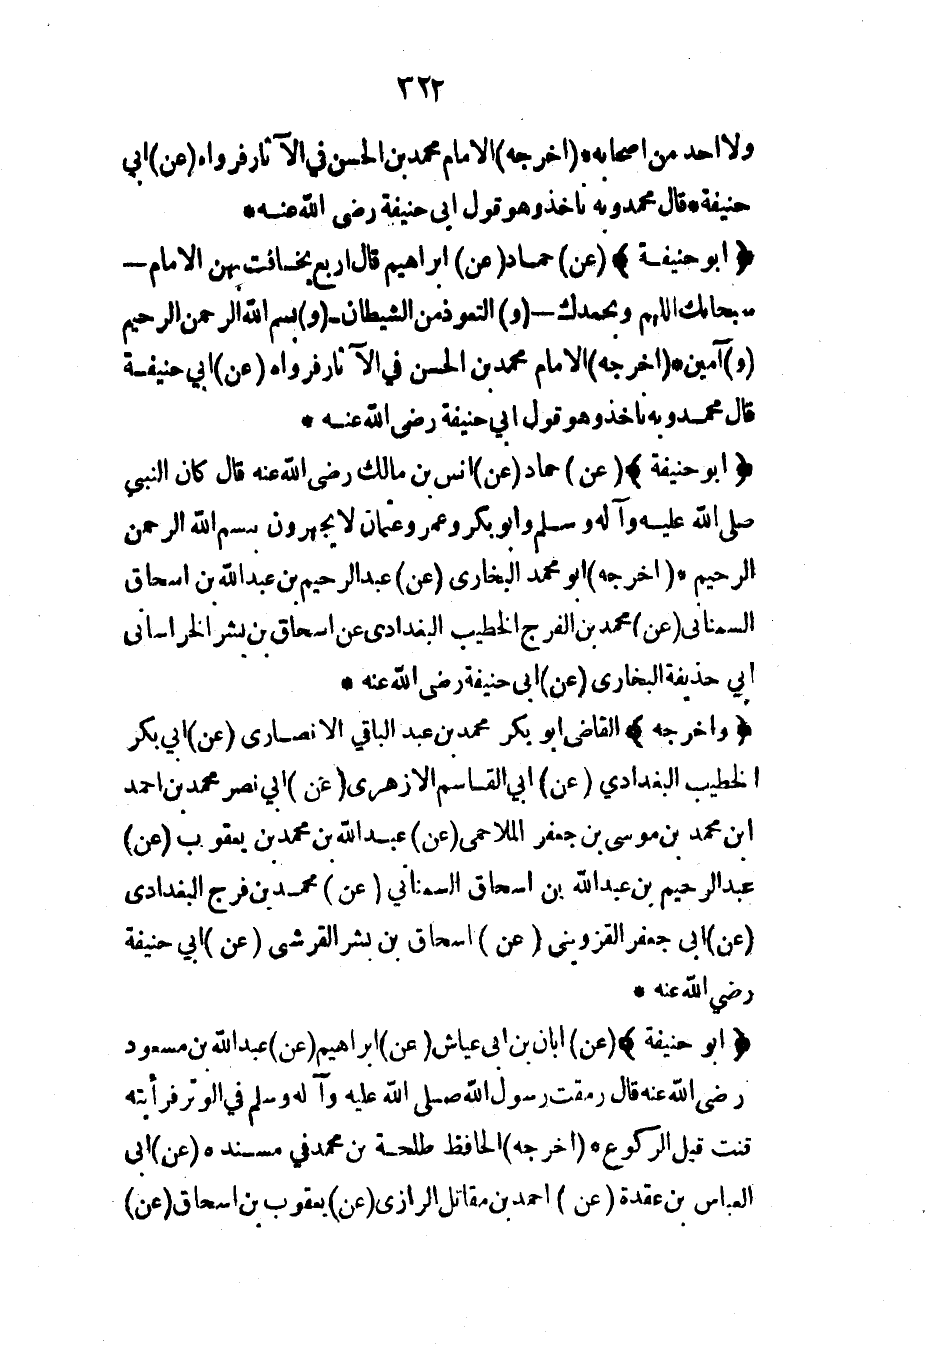 ٣٢٢
ولا احد من اصحابه * (اخرجه) الامام محمد بن الحسن في الآثار فرواه (عن) ابي
حنيفة * قال محمد وبه ناخذ وهو قول ابي حنيفة رضى الله عنه *
﴿ ابو حنيفة ﴾ (عن) حماد (عن) ابراهيم قال اربع يخافت بهن الامام —
سبحانك اللهم وبحمدك — (و) التعوذ من الشيطان — (و) بسم الله الرحمن الرحيم
(و) آمين * (اخرجه) الامام محمد بن الحسن في الآثار فرواه (عن) ابي حنيفة
قال محمد وبه ناخذ وهو قول ابي حنيفة رضى الله عنه *
﴿ ابو حنيفة ﴾ (عن) حماد (عن) انس بن مالك رضى الله عنه قال كان النبي
صلى الله عليه وآله وسلم وابو بكر وعمر وعثمان لا يجهرون ببسم الله الرحمن
الرحيم * (اخرجه) ابو محمد البخارى (عن) عبد الرحيم بن عبد الله بن اسحاق
السمنانى (عن) محمد بن الفرج الخطيب البغدادى عن اسحاق بن بشر الخراسانى
ابي حذيفة البخارى (عن) ابى حنيفة رضى الله عنه *
﴿ واخرجه ﴾ القاضى ابو بكر محمد بن عبد الباقي الانصارى (عن) ابي بكر
الخطيب البغدادي (عن) ابي القاسم الازهرى (عن) ابي نصر محمد بن احمد
ابن محمد بن موسى بن جعفر الملاحمى (عن) عبد الله بن محمد بن يعقوب (عن)
عبد الرحيم بن عبد الله بن اسحاق السمناني (عن) محمد بن فرج البغدادى
(عن) ابى جعفر القزوينى (عن) اسحاق بن بشر القرشى (عن) ابي حنيفة
رضي الله عنه *
﴿ ابو حنيفة ﴾ (عن) ابان بن ابى عياش (عن) ابراهيم (عن) عبد الله بن مسعود
رضى الله عنه قال رمقت رسول الله صلى الله عليه وآله وسلم في الوتر فرأيته
قنت قبل الركوع * (اخرجه) الحافظ طلحة بن محمد في مسنده (عن) ابى
العباس بن عقدة (عن) احمد بن مقاتل الرازى (عن) يعقوب بن اسحاق (عن)